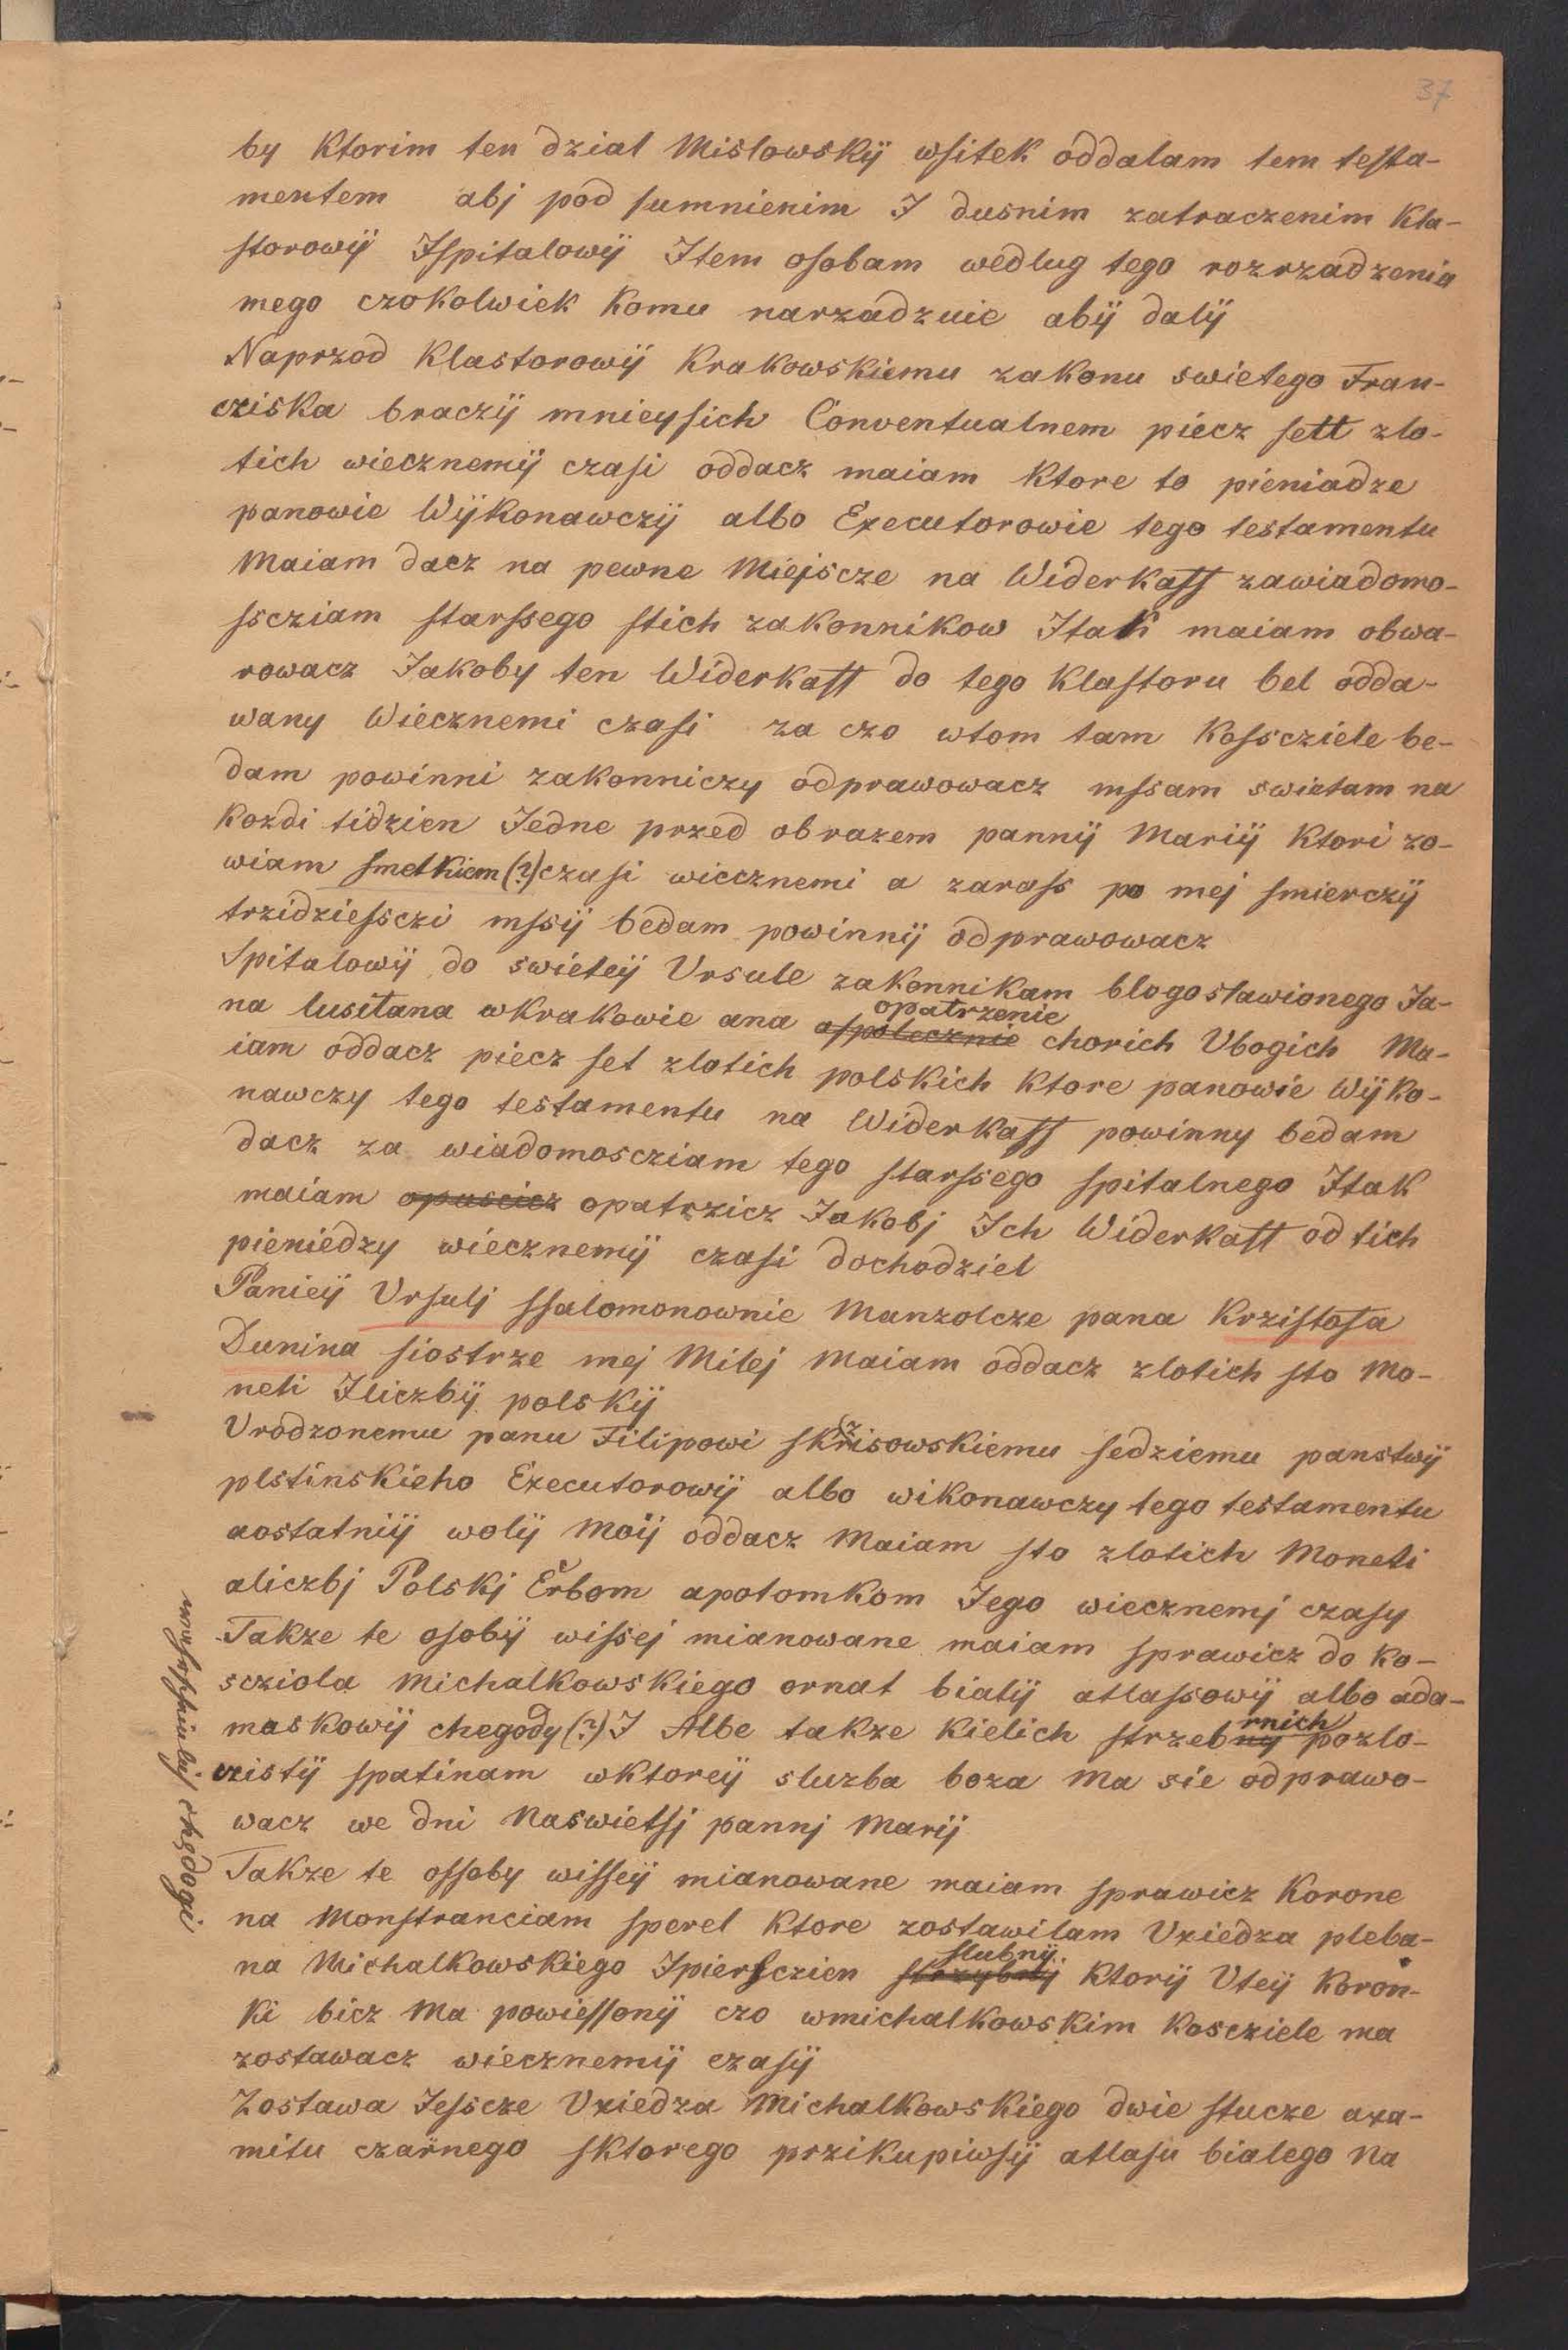 37
by Ktorim ten dzial Mislowskÿ wsitek oddalam tem testa-
mentem abj pod sumnienim I dusnim zatraczenim Kla-
storowÿ Ispitalowÿ Item osobam wedlug tego rozrzadzenia
mego czokolwiek Komu narzadzuie abÿ dalÿ
Naprzod Klastorowÿ Krakowskiemu zakonu swietego Fran-
cziska braczÿ mnieysich Conventualnem piecz sett zlo-
tich wiecznemÿ czasi oddacz maiam Ktore to pieniadze
panowie Wÿkonawczÿ albo Executorowie tego testamentu
Maiam dacz na pewne Miejscze na Widerkaff zawiadomo-
sscziam starssego stich zakonnikow Itak maiam obwa-
rowacz Jakoby ten Widerkaff do tego Klastoru bel odda-
wany Wiecznemi czasi za czo wtom tam Kosscziele be-
dam powinni zakonniczy odprawowacz mssam swietam na
Kozdi tidzien Jedne przed obrazem pannÿ Mariÿ Ktori zo-
wiam smetkiem (?) czasi wiecznemi a zarass po mej smierczÿ
trzidziessczi mssÿ bedam powinnÿ odprawowacz
Spitalowÿ do swieteÿ Ursule zakonnikam blogoslawionego Ja-
opatrzenie
na lusitana wKrakowie ana aspolecznie chorich Ubogich Ma-
iam oddacz piecz set zlotich polskich Ktore panowie Wÿko-
nawczy tego testamentu na Widerkaff powinny bedam
dacz za wiadomoscziam tego starssego spitalnego Itak
maiam opuscicz opatrzicz Jakobj Ich Widerkaff od tich
pieniedzy wiecznemÿ czasi dochodziel
Panieÿ Ursulj ssalomonownie Manzolcze pana Krzistofa
Dunina siostrze mej Milej Maiam oddacz zlotich sto Mo-
neti Iliczbÿ polskÿ
Urodzonemu panu Filipowi skrzisowskiemu sedziemu panstwÿ
plstinskieho Executorowÿ albo wikonawczy tego testamentu
aostatniÿ wolÿ Moÿ oddacz Maiam sto zlotich Moneti
aliczbj Polskj Erbom apotomkom Jego wiecznemj czasy
Takze te osobÿ wissej mianowane maiam sprawicz do Ko-
scziola Michalkowskiego ornat bialÿ atlassowÿ albo ada-
maskowÿ chegody (?) I Albe takze Kielich strzebny pozlo-
rnich
czistÿ spatinam wktoreÿ sluzba boza Ma sie odprawo-
wacz we dni Naswietsj pannj Marij
Takze te ossoby wisseÿ mianowane maiam sprawicz Korone
na Monstranciam sperel Ktore zostawilam Uxiedza pleba-
slubnÿ
na Michalkowskiego Ipiersczien strzybnÿ Ktorÿ Uteÿ Koron-
Ki bicz Ma powiessonÿ czo wmichalkowskim Kosciele ma
zostawacz wiecznemÿ czasÿ
Zostawa Jesscze Uxiedza Michalkowskiego dwie stucze axa-
mitu czarnego sktorego przikupiwsÿ atlasu bialego Na
chędogi